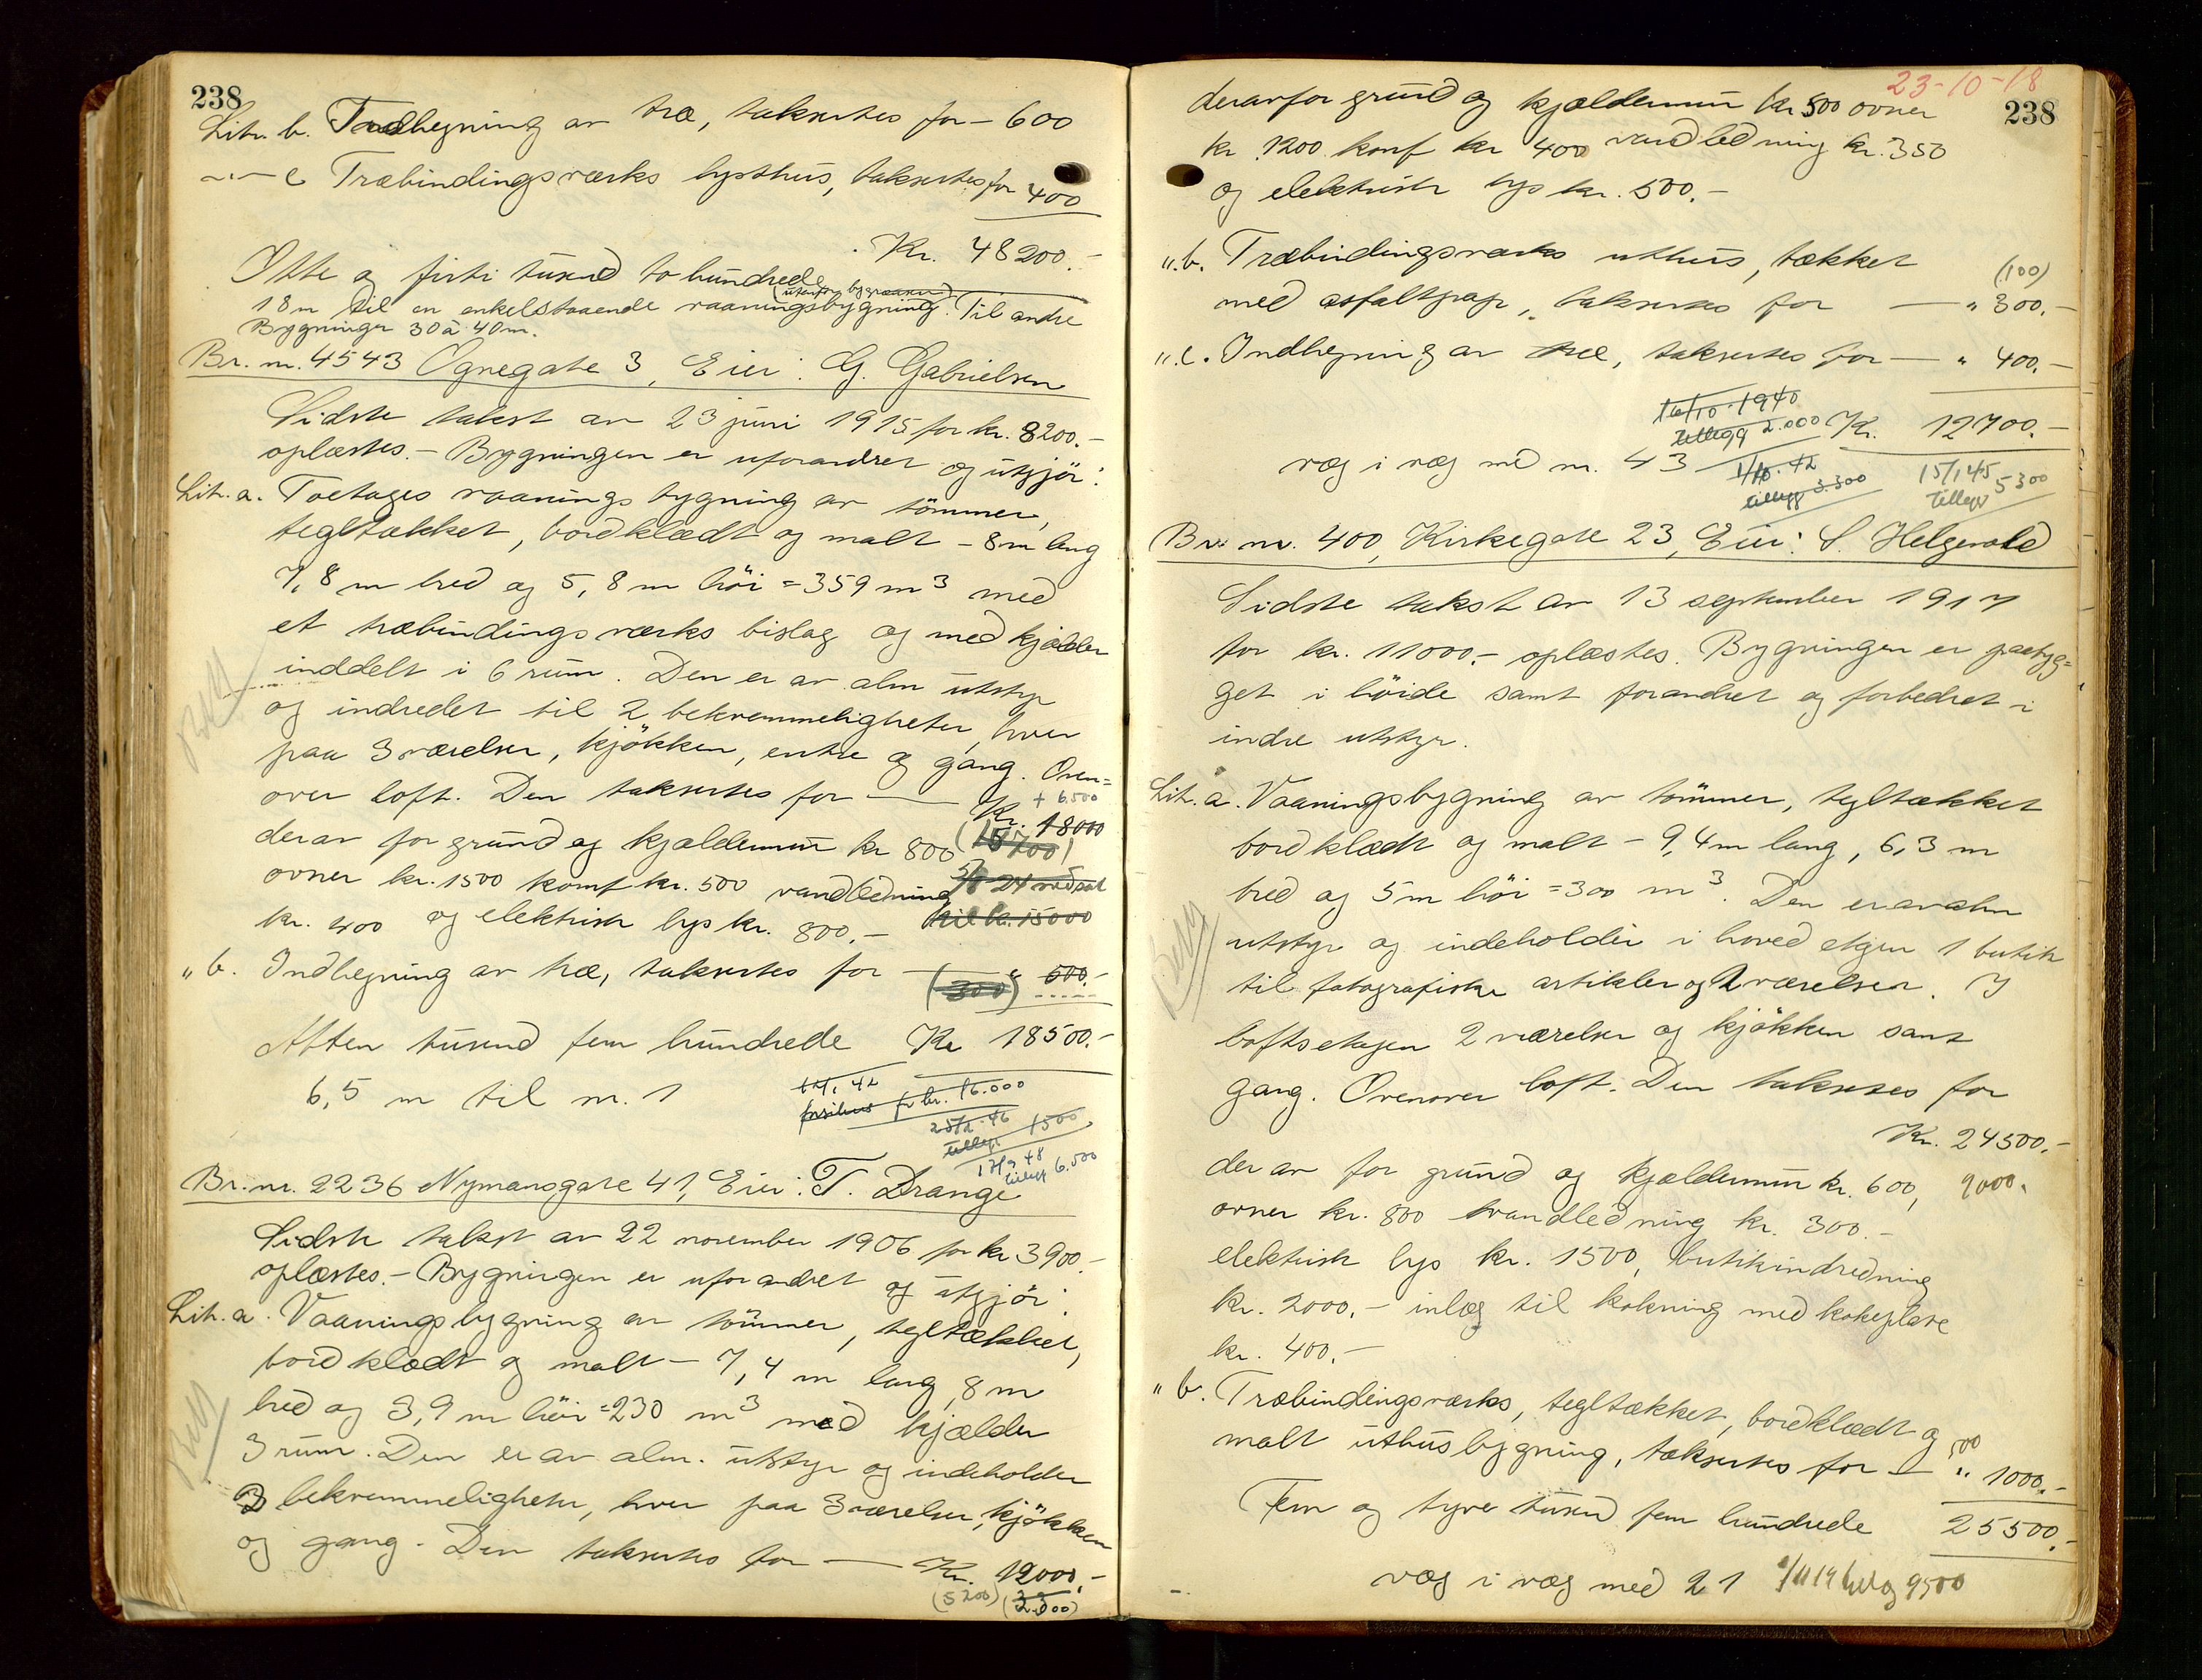 238
Litr. b. Indhegning av træ, takseres for – 600
—"— c Træbindingsværks lysthus, takseres for 400
Kr. 48200.-
Otte og firti tusend to hundrede
18 m til en enkelstaaende vaaningsbygning. Til andre
Bygninger 30 à 40 m.
Br. nr. 4543 Ognegate 3, Eier: G. Gabrielsen
Sidste takst av 23 juni 1915 for kr. 8200.-
oplæstes. – Bygningen er uforandret og utgjör:
Litr. a. Toetages vaaningsbygning av tömmer,
tegltækket, bordklædt og malt – 8 m lang
7,8 m bred og 5,8 m höi = 359 m3 med
et træbindingsværks bislag og med kjælder
inddelt i 6 rum. Den er av alm utstyr
og indredet til 2 bekvemmeligheter, hver
paa 3 værelser, kjökken, entre og gang. Oven-
over loft. Den takseres for — Kr. 18000
+ 6.500
derav for grund og kjældermur kr 800 (15700)
ovner kr. 1500 komf kr. 500 vandledning
5/8 24 nedsat
kr. 400 og elektrisk lys kr. 800.- til kr. 15000
" b. Indhegning av træ, takseres for — " 500.-
(300)
Atten tusend fem hundrede Kr 18500.-
6,5 m til nr. 1
for kr. 16.000
25/2-46 1500
tillegg
17/9 48
tillegg 6.500
Br. nr. 2236 Nymansgate 41, Eier: T. Drange
Sidste takst av 22 november 1906 for kr 3900.-
oplæstes. – Bygningen er uforandret og utgjör:
Litr. a. Vaaningsbygning av tömmer, tegltækket,
bordklædt og malt – 7,4 m lang, 8 m
bred og 3,9 m höi = 230 m3 med kjælder
3 rum. Den er av alm. utstyr og indeholder
2 bekvemmeligheter, hver paa 3 værelser, kjökken
og gang. Den takseres for — Kr. 12000.-
(5200)
23-10-18
238
derav for grund og kjældermur kr 500 ovner
kr. 1200. komf kr 400 vandledning kr. 350
og elektrisk lys kr. 500.-
". b. Træbindingsværks uthus, tækket
(100)
med asfaltpap, takseres for — " 300.-
". c. Indhegning av træ, takseres for — " 400.-
16/10-1940
tillegg 2.000 Kr. 12700.-
væg i væg med nr. 43
1/10.42
tillegg 3.300
15/1 45
tillegg 5300
Br. nr. 400, Kirkegate 23, Eier: S. Helgevold
Sidste takst av 13 september 1917
for kr. 11000.- oplæstes. Bygningen er paabyg-
get i höide samt forandret og forbedret i
indre utstyr.
Litr. a. Vaaningsbygning av tömmer, tegltækket
bordklædt og malt – 9,4 m lang, 6,3 m
bred og 5 m höi = 300 m3. Den er av alm
utstyr og indeholder i hovedetagen 1 butik
til fotografiske artikler og 2 værelser. I
loftsetagen 2 værelser og kjökken samt
gang. Ovenover loft. Den takseres for
Kr. 24500.-
derav for grund og kjældermur kr. 600, 9000.
ovner kr. 800 vandledning kr. 300.-
elektrisk lys kr. 1500, butikindredning
kr. 2000.- inlæg til kokning med kokeplate
kr. 400.-
" b. Træbindingsværks, tegltækket, bordklædt og
malt uthusbygning, takseres for — " 1000.-
500
Fem og tyve tusend fem hundrede 25500.-
væg i væg med 21
9500